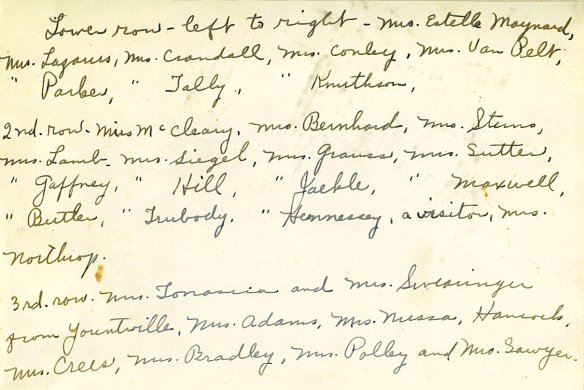 Lower row - left to right - Mrs. Estelle Maynard,
Mrs. Lazarus, Mrs. Crandall, Mrs. Conley, Mrs. Van Pelt,
" Parker, " Tally, " Knuthson,
2nd. row - Miss McCleary, Mrs. Bernhard, Mrs. Sterns,
Mrs. Lamb - Mrs. Siegel, Mrs. Grauss, Mrs. Sutter,
" Gaffney, " Hill, " Jaekle, " Maxwell,
" Butler, " Trubody. " Hennessey, a visitor, Mrs.
Northrop.
3rd. row - Mrs. and Mrs. Swearinger
from Yountville, Mrs. Adams, Mrs. Nussa, Hancock,
Mrs. Crees, Mrs. Bradley, Mrs. Polley and Mrs. Sawyer.